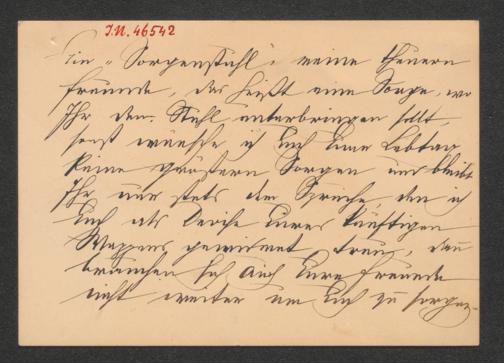 I.N. 46542
Ein „Sorgenstuhl“, meine theuern
Freunde, das heißt eine Sorge, wo
Ihr den Stuhl unterbringen sollt,
sonst wünsche ich Euch Eure Lebtag
keine größern Sorgen und bleibt
Ihr nur stets dem Spruche, den ich
Euch als Devise Eures künftigen
Wappens gewidmet, treu, dann
brauchen sich auch Eure Freunde
nicht weiter um Euch zu sorgen.